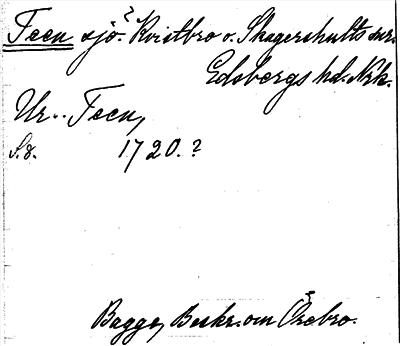 Teen sjö? Kvistbro o. Skagershults snr.
Edsbergs hd. Nrk.
Ur.. Teen,
S. 8. 1720.?
Bagge, Beskr. om Örebro.